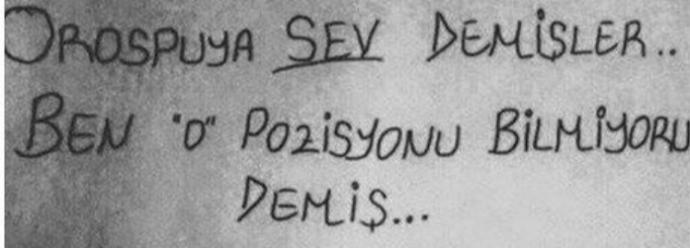 OROSPUYA SEV DEMİŞLER..
BEN "O" POZİSYONU BİLMİYORU
DEMİŞ...